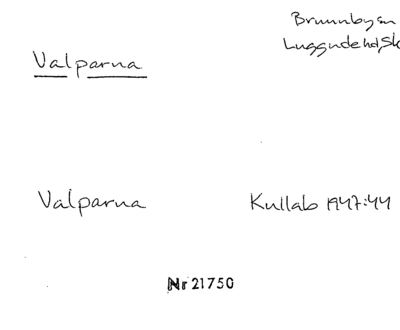 Brunnby sn
Luggude hd, Sk
Valparna
Valparna
Kullab 1947:44
Nr 21750